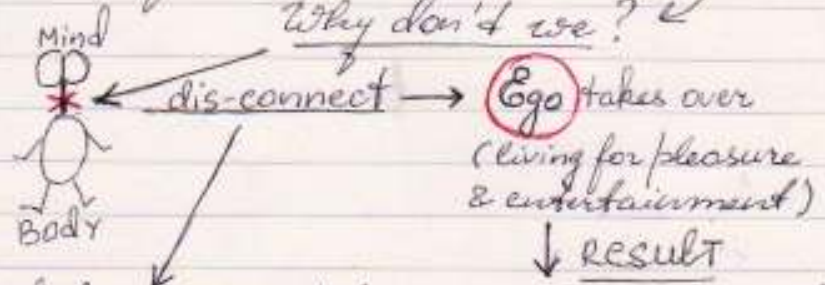 Why don't we?
Mind
dis-connect → Ego takes over
(living for pleasure
& entertainment)
Body
↓ RESULT